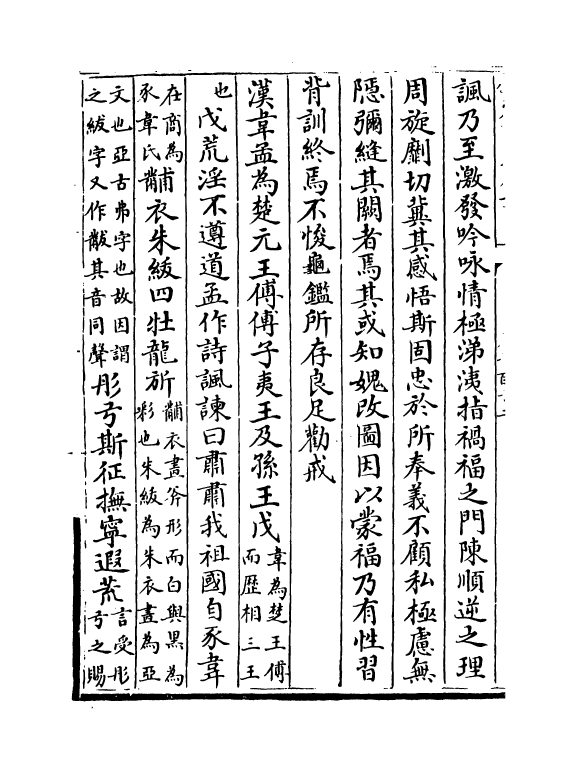 諷乃至激發吟咏情極涕洟指禍福之門陳順逆之理
周旋劘切冀其感悟斯固忠於所奉義不顧私極慮無
隱彌縫其闕者焉其或知媿改圖因以蒙福乃有性習
背訓終焉不悛龜鑑所存良足勸戒
漢韋孟為楚元王傅傅子夷王及孫王戊韋為楚王傅而歴相三王
也戊荒淫不遵道孟作詩諷諫曰肅肅我祖國自豕韋
在商為豕韋氏黼衣朱紱四牡龍旂黼衣畫斧形而白與黒為彩也朱紱為朱衣畫為亞
文也亞古弗字也故因謂之紱字又作黻其音同聲彤弓斯征撫寧遐荒言受彤弓之賜